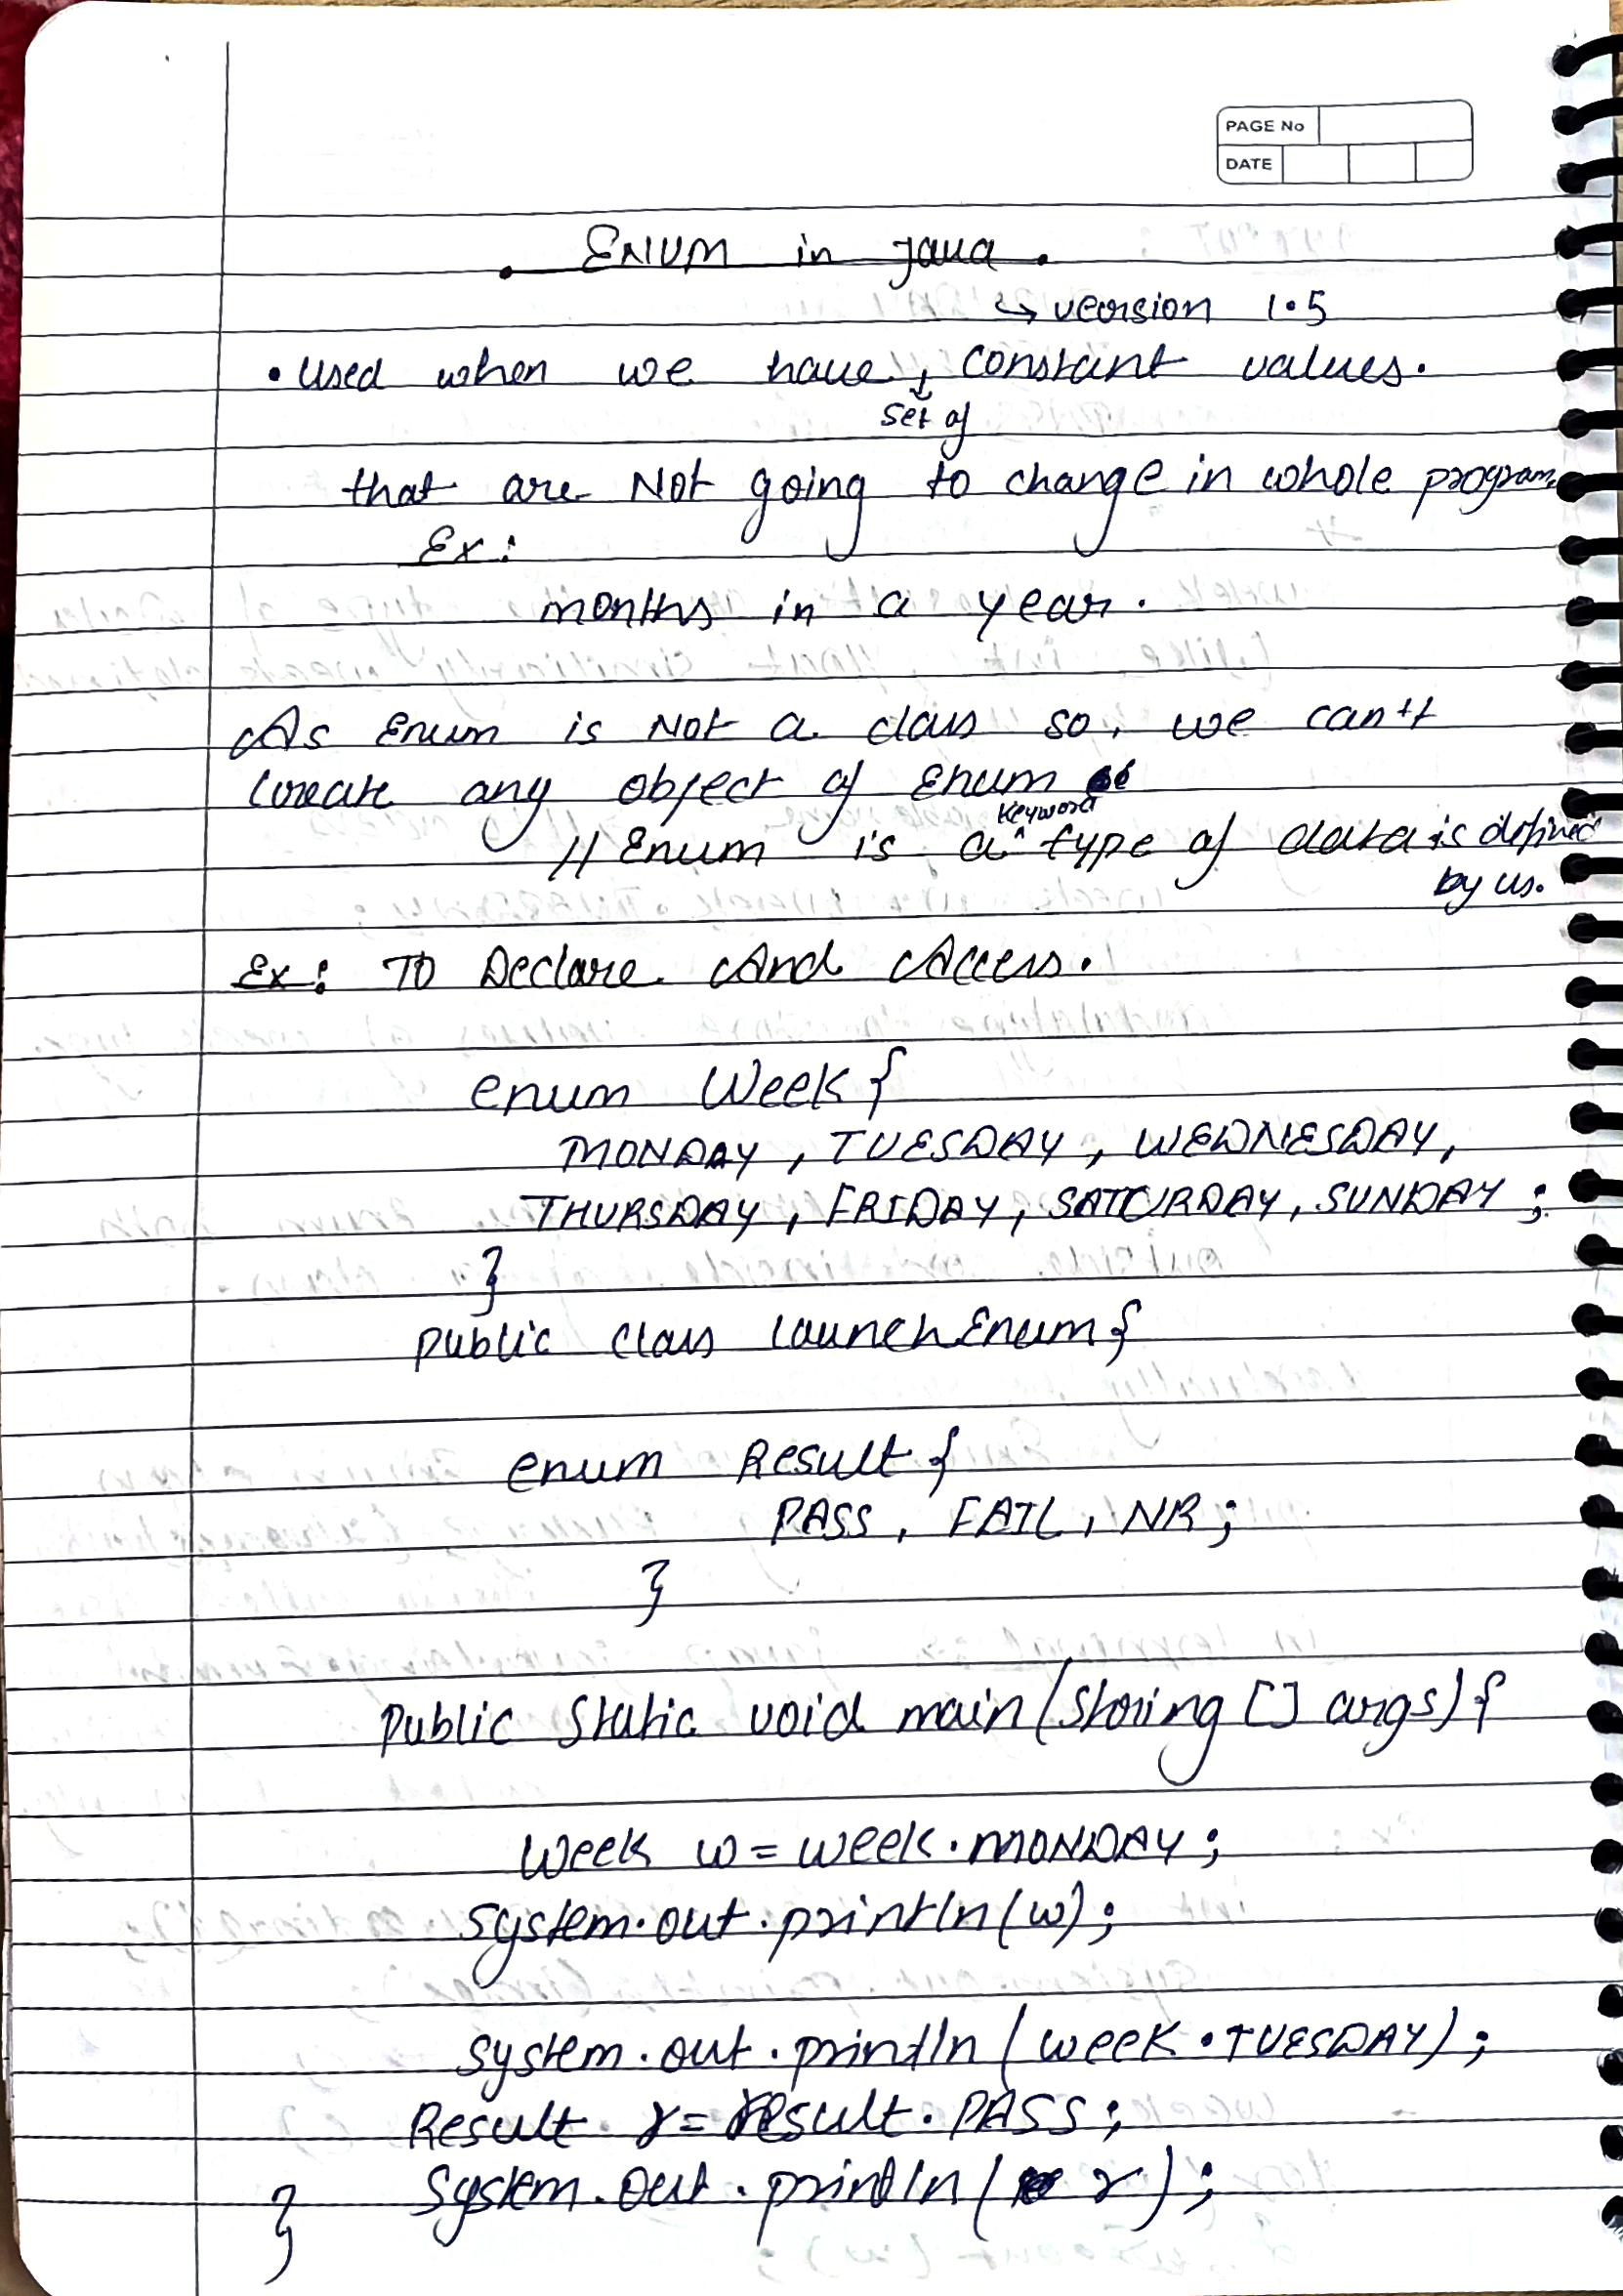 PAGE No
DATE
. ENUM in java .
↳ version 1.5
• Used when we have, constant values.
set of
that are Not going to change in whole program.
Ex:
months in a year.
As Enum is Not a class so, we can't
create any object of Enum
keyword
// Enum is a ^ type of data is defined
by us.
Ex: TO Declare And Access.
enum Week {
MONDAY, TUESDAY, WEDNESDAY,
THURSDAY, FRIDAY, SATURDAY, SUNDAY ;
}
public class launchEnum {
enum Result {
PASS, FAIL, NR;
}
public static void main(String [] args) {
Week w = week.MONDAY;
system.out.println(w);
system.out.println(week.TUESDAY);
Result r = result.PASS;
} System.out.println(r);